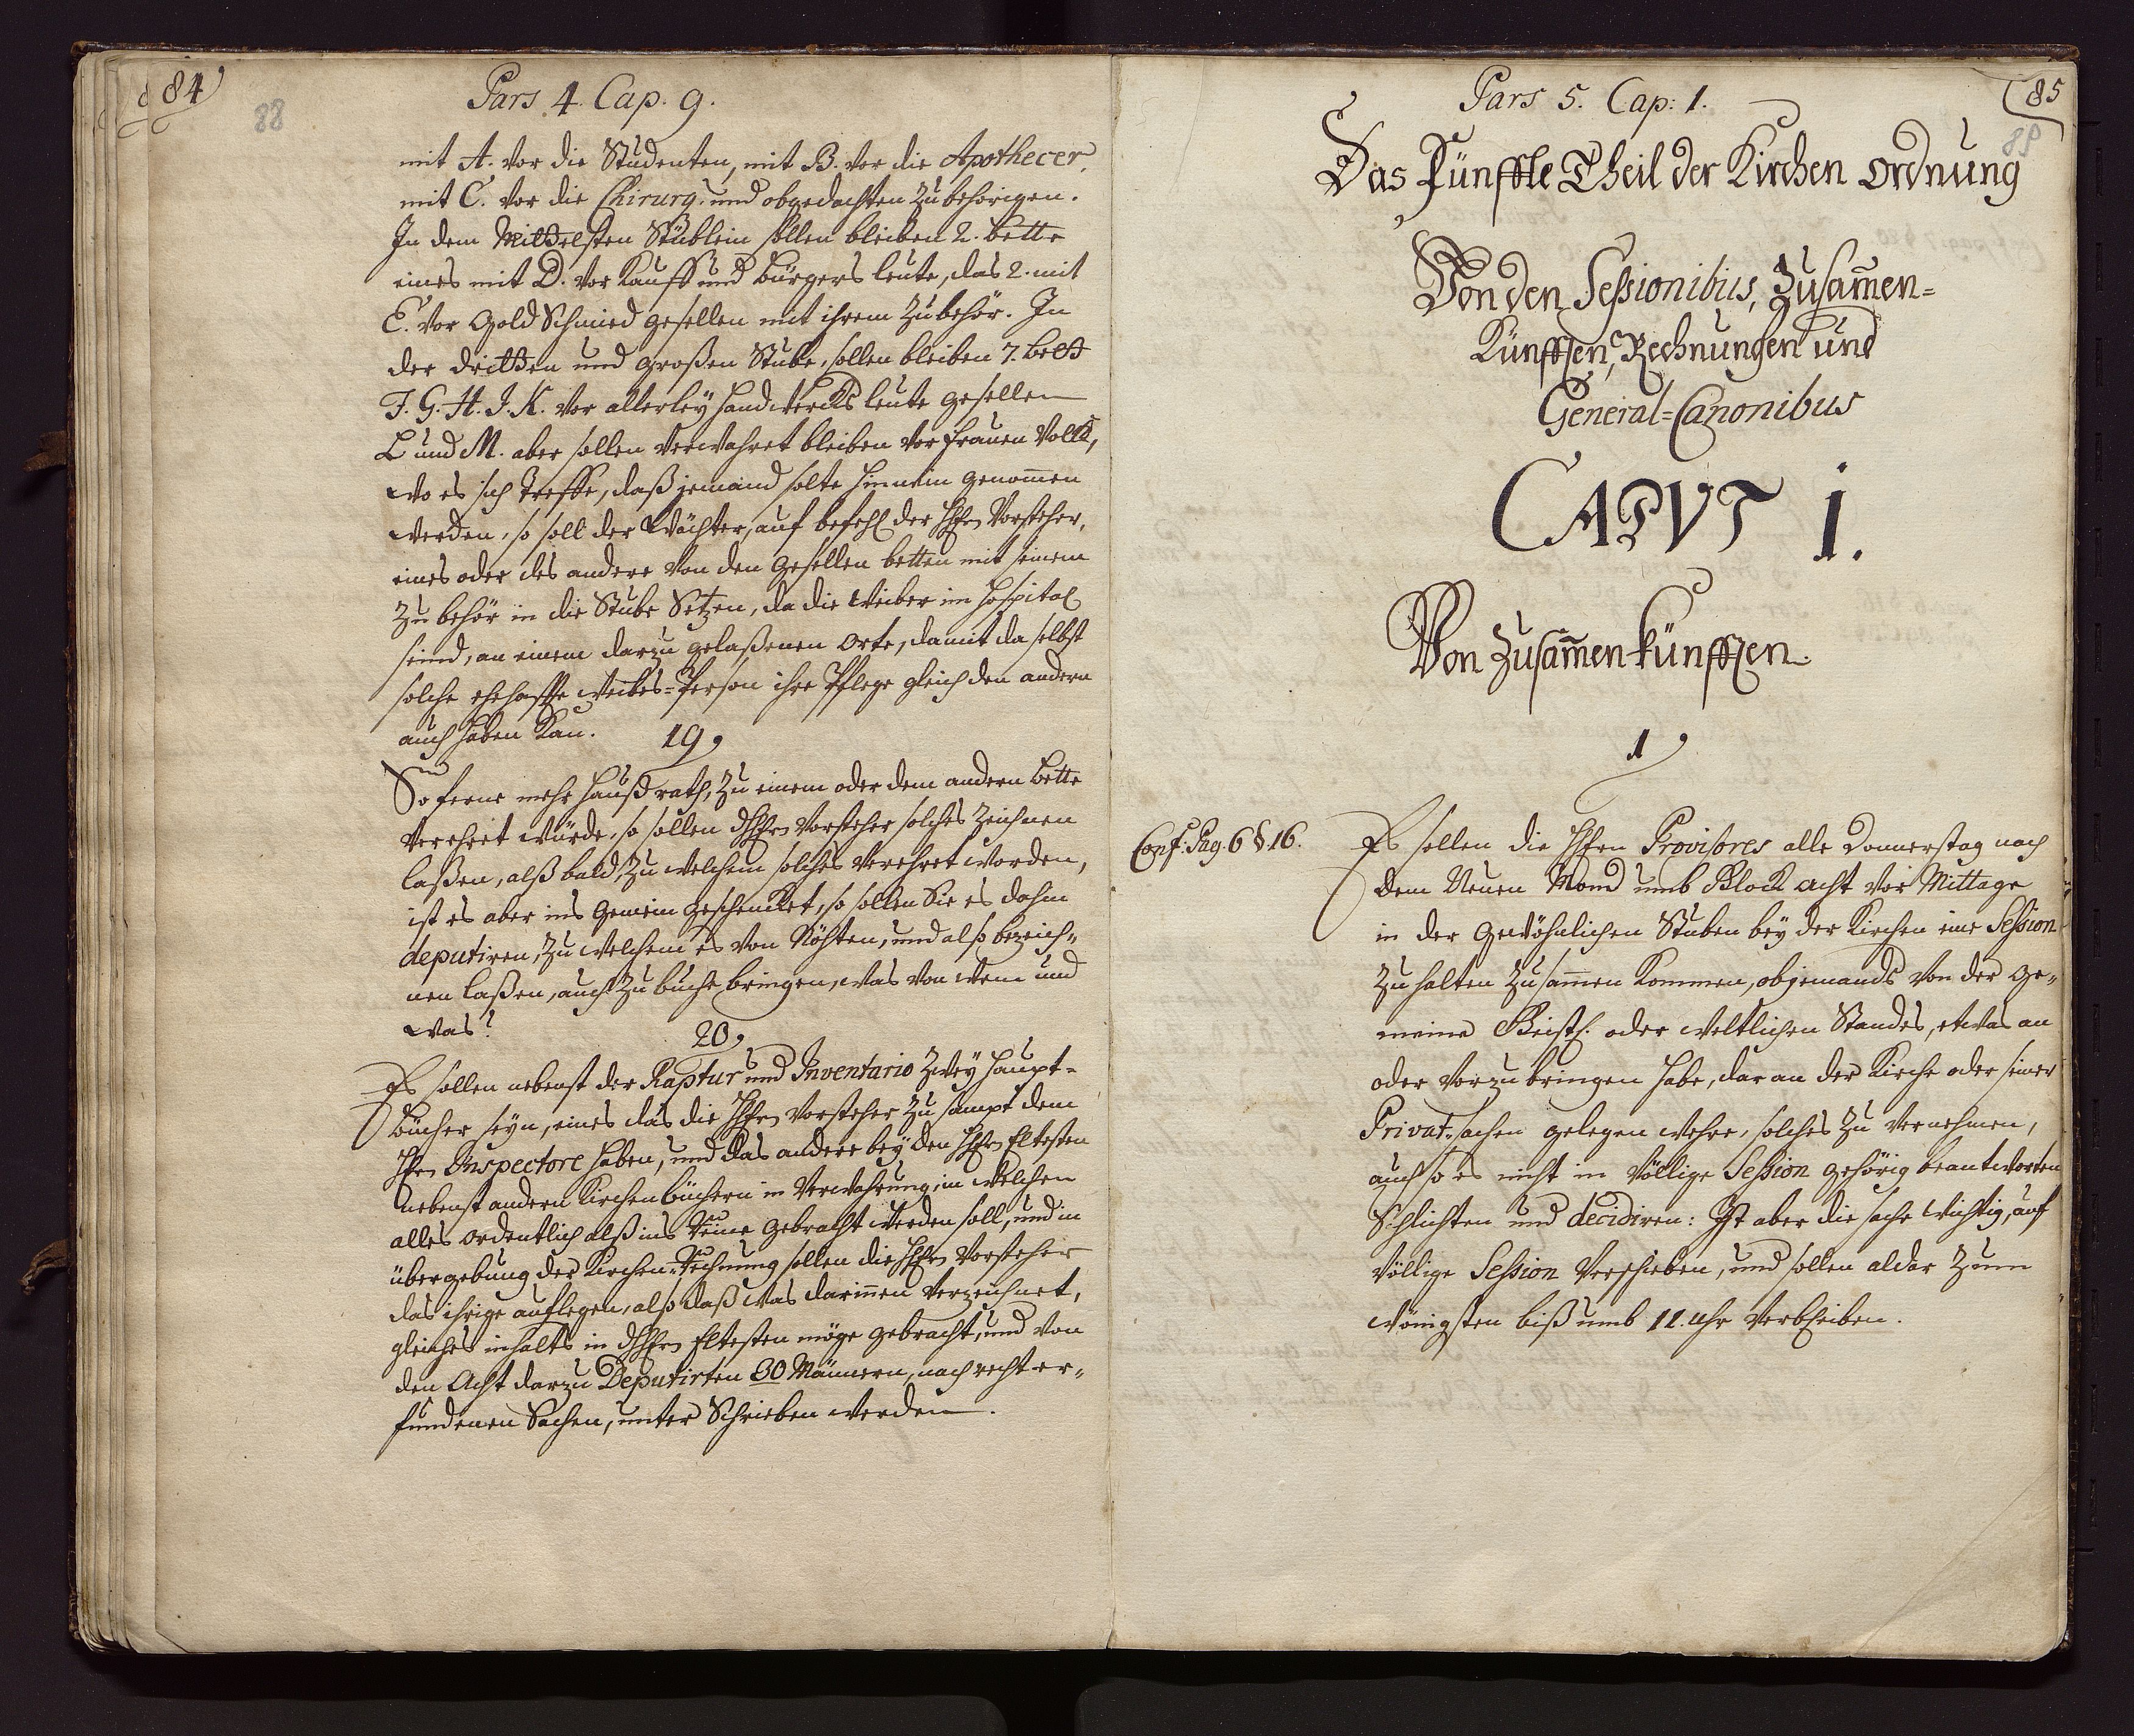 84
88
Pars 4. Cap. 9.
mit A. vor die Studenten, mit B. vor die Apothecer,
mit C. vor die Chirurg. und obgedachten Zubehörigen.
In dem Mittelsten Stüblein sollen bleiben 2. bette
eines mit D. vor Kauff und bürgers leute, das 2. mit
E. vor Gold Schmied gesellen mit ihrem Zubehör. In
der dritten und großen Stube, sollen bleiben 7. bett
F. G. H. I. K. vor allerley handwercks leute gesellen
L und M. aber sollen verwahret bleiben vor frauen Volck,
wo es sich treffe, daß jemand solte hinnein genom̄en
werden, so soll der Wächter, auf befehl der HHrn Vorsteher,
eines oder des andere von den gesellen betten mit seinem
Zubehör in die Stube Setzen, da die Weiber im Hospital
seind, an einem darzu gelaßenen orte, damit da selbst
solche ehehaffte Weibes-Person ihre Pflege gleich den andern
auch haben Kan.
19,
So ferne mehr haußrath, zu einem oder dem andern bette
verehret würde, so sollen dHHrn Vorsteher solches zeichnen
laßen, alß bald, zu welchem solches verehret worden,
ist es aber ins gemein geschencket, so sollen Sie es dahin
deputiren, zu welchem es von Nöhten, und also bezeich-
nen laßen, auch zu buche bringen, was von wem und
was?
20,
Es sollen nebenst der Raptur und Inventario zwey haupt-
bücher seyn, eines das die HHrn Vorsteher zu sampt dem
Hrn Inspectore haben, und das andere bey den HHrn Eltesten
nebenst andern Kirchenbüchern in Verwahrung, in welchen
alles ordentlich alß ins reine gebracht werden soll, und in
übergebung der Kirchen-Rechnung sollen die HHrn Vorsteher
das ihrige auflegen, also daß was darinnen verzeichnet,
gleiches inhalts in dHHrn Eltesten möge gebracht, und von
den Acht darzu Deputirten 30 Männern, nach recht er-
fundenen Sachen, unter Schrieben werden.
85
89
Pars 5. Cap: 1.
Das Fünffte Theil der Kirchen Ordnung
Von den Sessionibus, Zusam̄en-
Künfften, Rechnungen und
General-Canonibus
CAPVT 1.
Von Zusam̄en-künfften.
1
Conf. Pag. 6 § 16.
Es sollen die HHren Provisores alle Donnerstag nach
dem Neuen Mond umb Klock acht vor Mittage
in der gewöhnlichen Stuben bey der Kirchen eine Session
zu halten zusam̄en kommen, ob jemands von der ge-
meine Geistl. oder weltlichen Standes, etwas an
oder vorzubringen habe, daran der Kirche oder seiner
Privat-sachen gelegen wehre, solches zu vernehmen,
auch so es nicht in völlige Session gehörig beantworten
Schlichten und decidiren: Ist aber die sache wichtig, auf
völlige Session verschieben, und sollen aldar zum
wönigsten biß umb 11. uhr verbleiben.